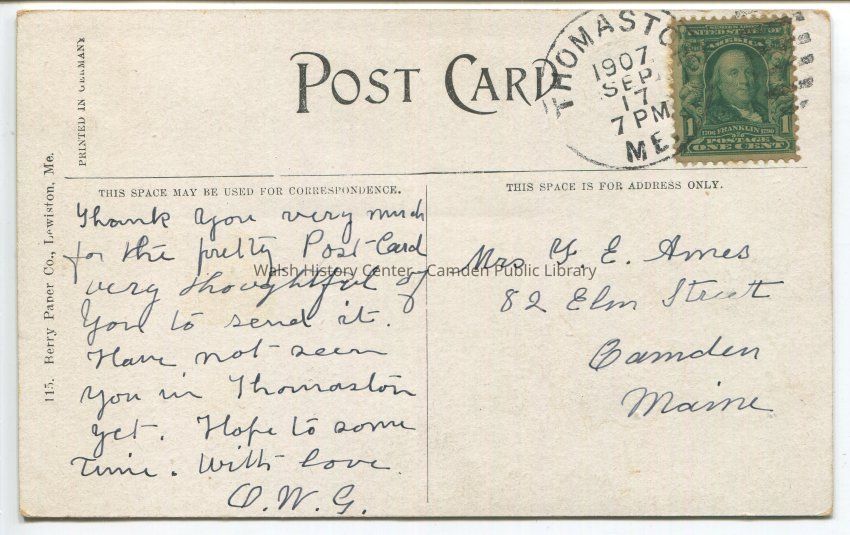 PRINTED IN GERMANY
115. Berry Paper Co., Lewiston, Me.
POST CARD
THOMASTO
1907
SEP
17
7 PM
ME.
UNITED STATES OF
AMERICA
1706 FRANKLIN 1790
1 POSTAGE 1
ONE CENT
THIS SPACE MAY BE USED FOR CORRESPONDENCE.
Thank you very much
for the pretty Post-Card
very thoughtful of
you to send it.
Have not seen
you in Thomaston
yet. Hope to some
time. With love
O.W.G.
THIS SPACE IS FOR ADDRESS ONLY.
Mrs Y E. Ames
82 Elm Street
Camden
Maine
Walsh History Center - Camden Public Library